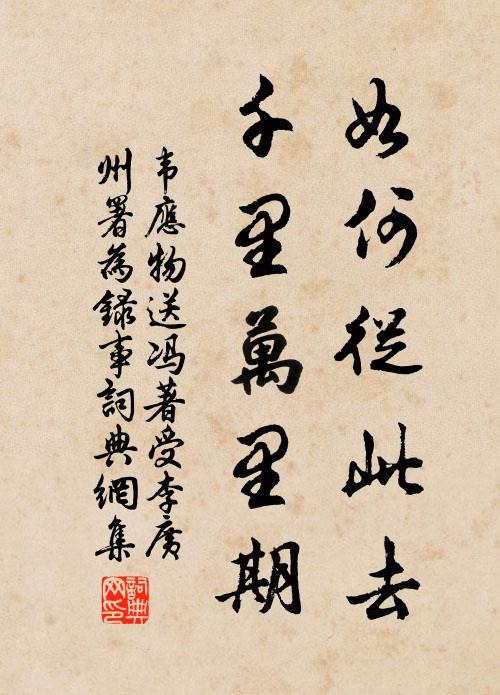 如何從此去
千里萬里期
韦應物送冯著受李廣
州署為録事詞典網集
詞典
网印